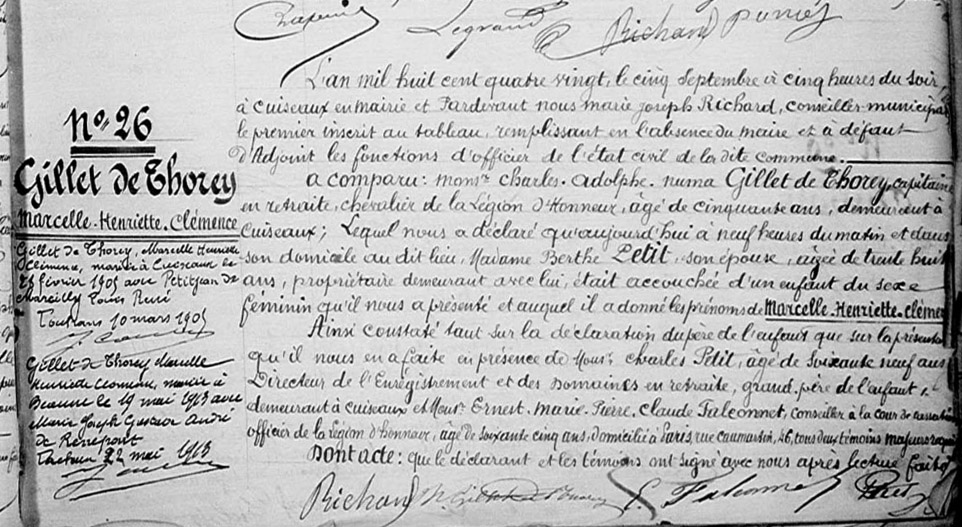 Legrand
Richard
N° 26
Gillet de Thorey
Marcelle-Henriette-Clémence
Gillet de Thorey, Marcelle Henriette
Clémence, mariée à Cuiseaux le
février 1905 avec Petitjean de
Marcilly Louis René
Louhans 10 mars 1905
Gillet de Thorey Marcelle
Henriette Clémence, mariée à
Beaune le 19 mai 1913 avec
Marie Joseph Gustave André
de
22 mai 1913
L'an mil huit cent quatre vingt, le cinq Septembre à cinq heures du soir,
à Cuiseaux en mairie et Pardevant nous marie joseph Richard, conseiller municipal
le premier inscrit au tableau, remplissant en l'absence du maire et à défaut
d'Adjoint les fonctions d'officier de l'état civil de la dite commune.
a comparu: monsr Charles-Adolphe-numa Gillet de Thorey, capitaine
en retraite, chevalier de la Légion d'Honneur, âgé de cinquante ans, demeurant à
Cuiseaux; Lequel nous a déclaré qu'aujourd'hui à neuf heures du matin et dans
son domicile au dit lieu, Madame Berthe Petit, son épouse, agée de trente huit
ans, propriétaire demeurant avec lui, était accouchée d'un enfant du sexe
féminin qu'il nous a présenté et auquel il a donné les prénoms de Marcelle-Henriette-Clémen
Ainsi constaté tant sur la déclaration du père de l'enfant que sur la présenta
qu'il nous en a faite en présence de Monsr Charles Petit, âgé de soixante neuf ans
Directeur de l'Enrégistrement et des Domaines en retraite, grand-père de l'enfant,
demeurant à cuiseaux et Monsr Ernest-Marie-Pierre, Claude Falconnet, conseiller à la cour de cassation
officier de la Légion d'honneur, âgé de soixante cinq ans, domicilié à Paris, rue caumartin, 46, tous deux témoins majeurs
Dont acte: que le déclarant et les témoins ont signé avec nous après lecture faite
Richard Falconnet Petit